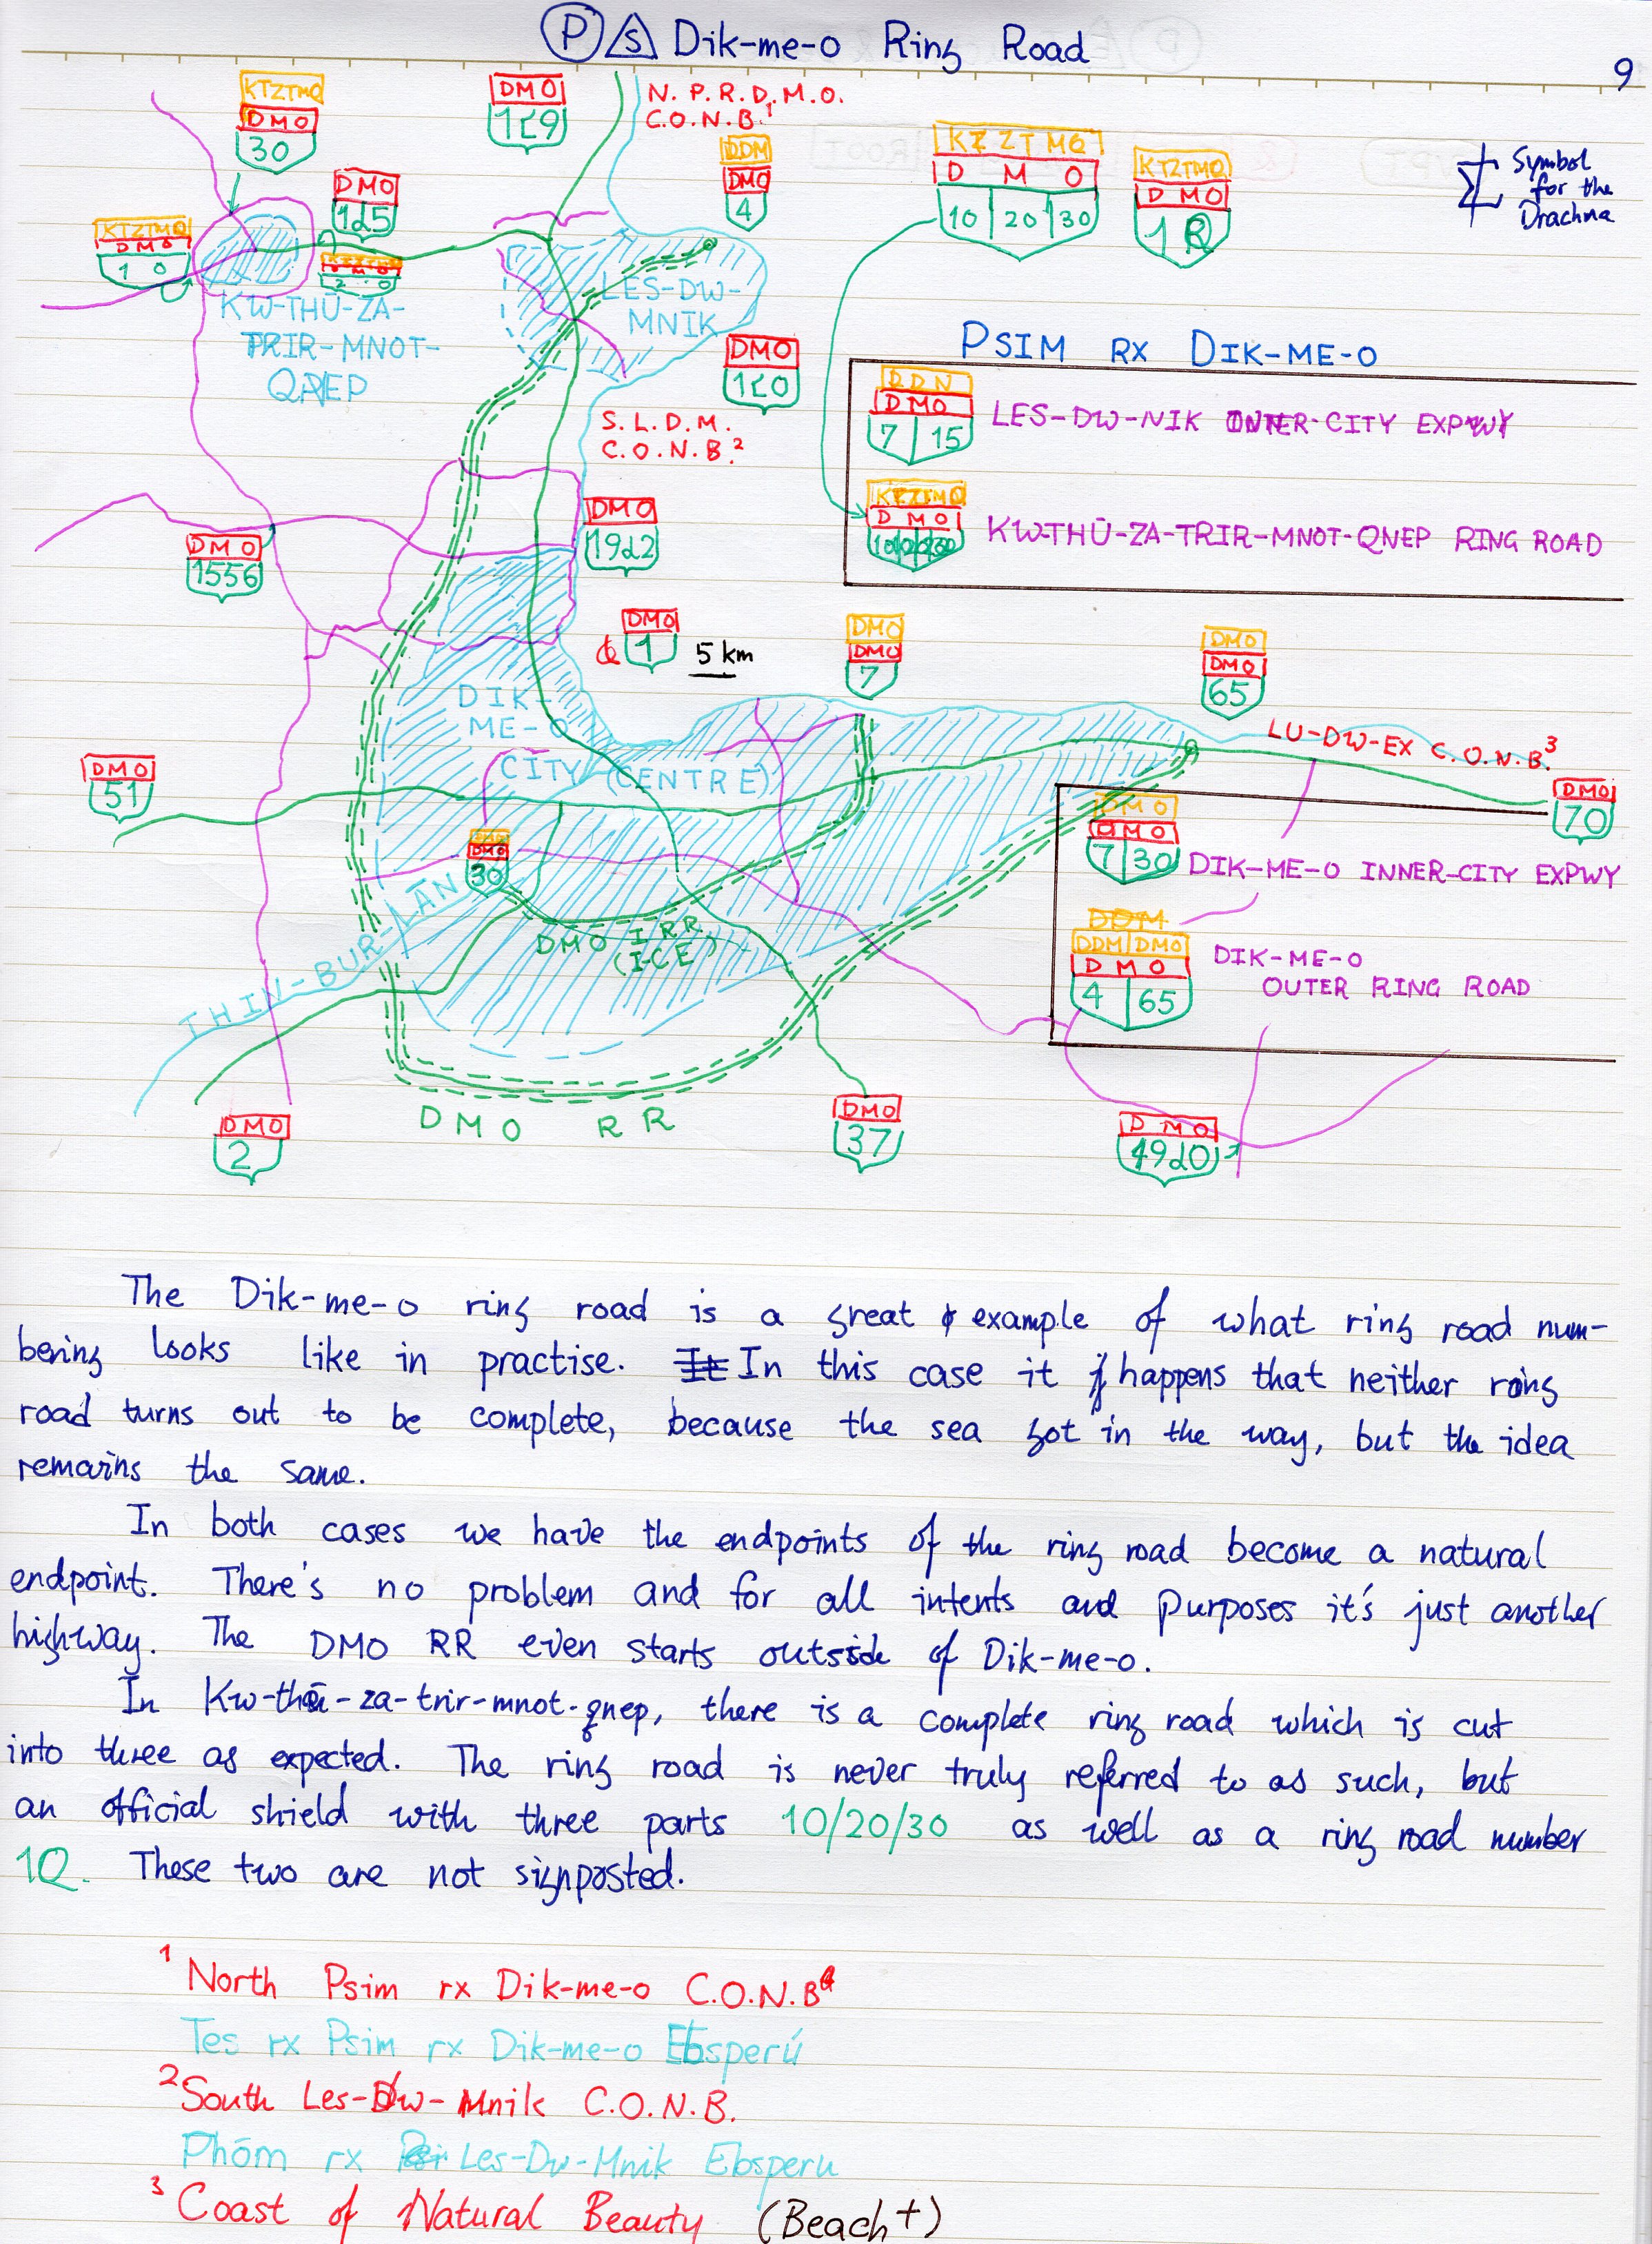 P S Dik-me-o Ring Road
9
KTZTMQ
DMO
30
DMO
1Ɛ9
N. P. R. D. M. O.
C.O.N.B.¹
DDM
DMO
4
KTZTMQ
DMO
10 20 30
KTZTMQ
DMO
1Q
Symbol
for the
Drachma
DMO
KTZTMQ
DMO
10
KW-THŪ-ZA-
TRIR-MNOT-
QNEP
LES-DW-
MNIK
DMO
PSIM RX DIK-ME-O
DDN
DMO
7 15
LES-DW-NIK INTER-CITY EXPWY
S. L. D. M.
C.O.N.B.²
KTZTMQ
DMO
KW-THŪ-ZA-TRIR-MNOT-QNEP RING ROAD
DMO
19d2
DMO
1556
DMO
1
5 km
DMO
DMO
7
DMO
DMO
65
DIK-
ME-O
CITY (CENTRE)
LU-DW-EX C.O.N.B.³
DMO
51
DMO
70
DMO
DMO
7 30
DIK-ME-O INNER-CITY EXPWY
DMO
30
THIN-BUR-LĀN
DMO IRR
(ICE)
DDM
DDM DMO
DMO
4 65
DIK-ME-O
OUTER RING ROAD
DMO RR
DMO
2
DMO
37
DMO
49d0
The Dik-me-o ring road is a great example of what ring road num-
bering looks like in practise. It In this case it happens that neither ring
road turns out to be complete, because the sea got in the way, but the idea
remains the same.
In both cases we have the endpoints of the ring road become a natural
endpoint. There's no problem and for all intents and purposes it's just another
highway. The DMO RR even starts outside of Dik-me-o.
In Kw-thū-za-trir-mnot-qnep, there is a complete ring road which is cut
into three as expected. The ring road is never truly referred to as such, but
an official shield with three parts 10/20/30 as well as a ring road number
1Q. These two are not signposted.
¹ North Psim rx Dik-me-o C.O.N.B
Tes rx Psim rx Dik-me-o Ebsperú
² South Les-Dw-Mnik C.O.N.B.
Phōm rx Les-Dw-Mnik Ebsperu
³ Coast of Natural Beauty (Beach+)